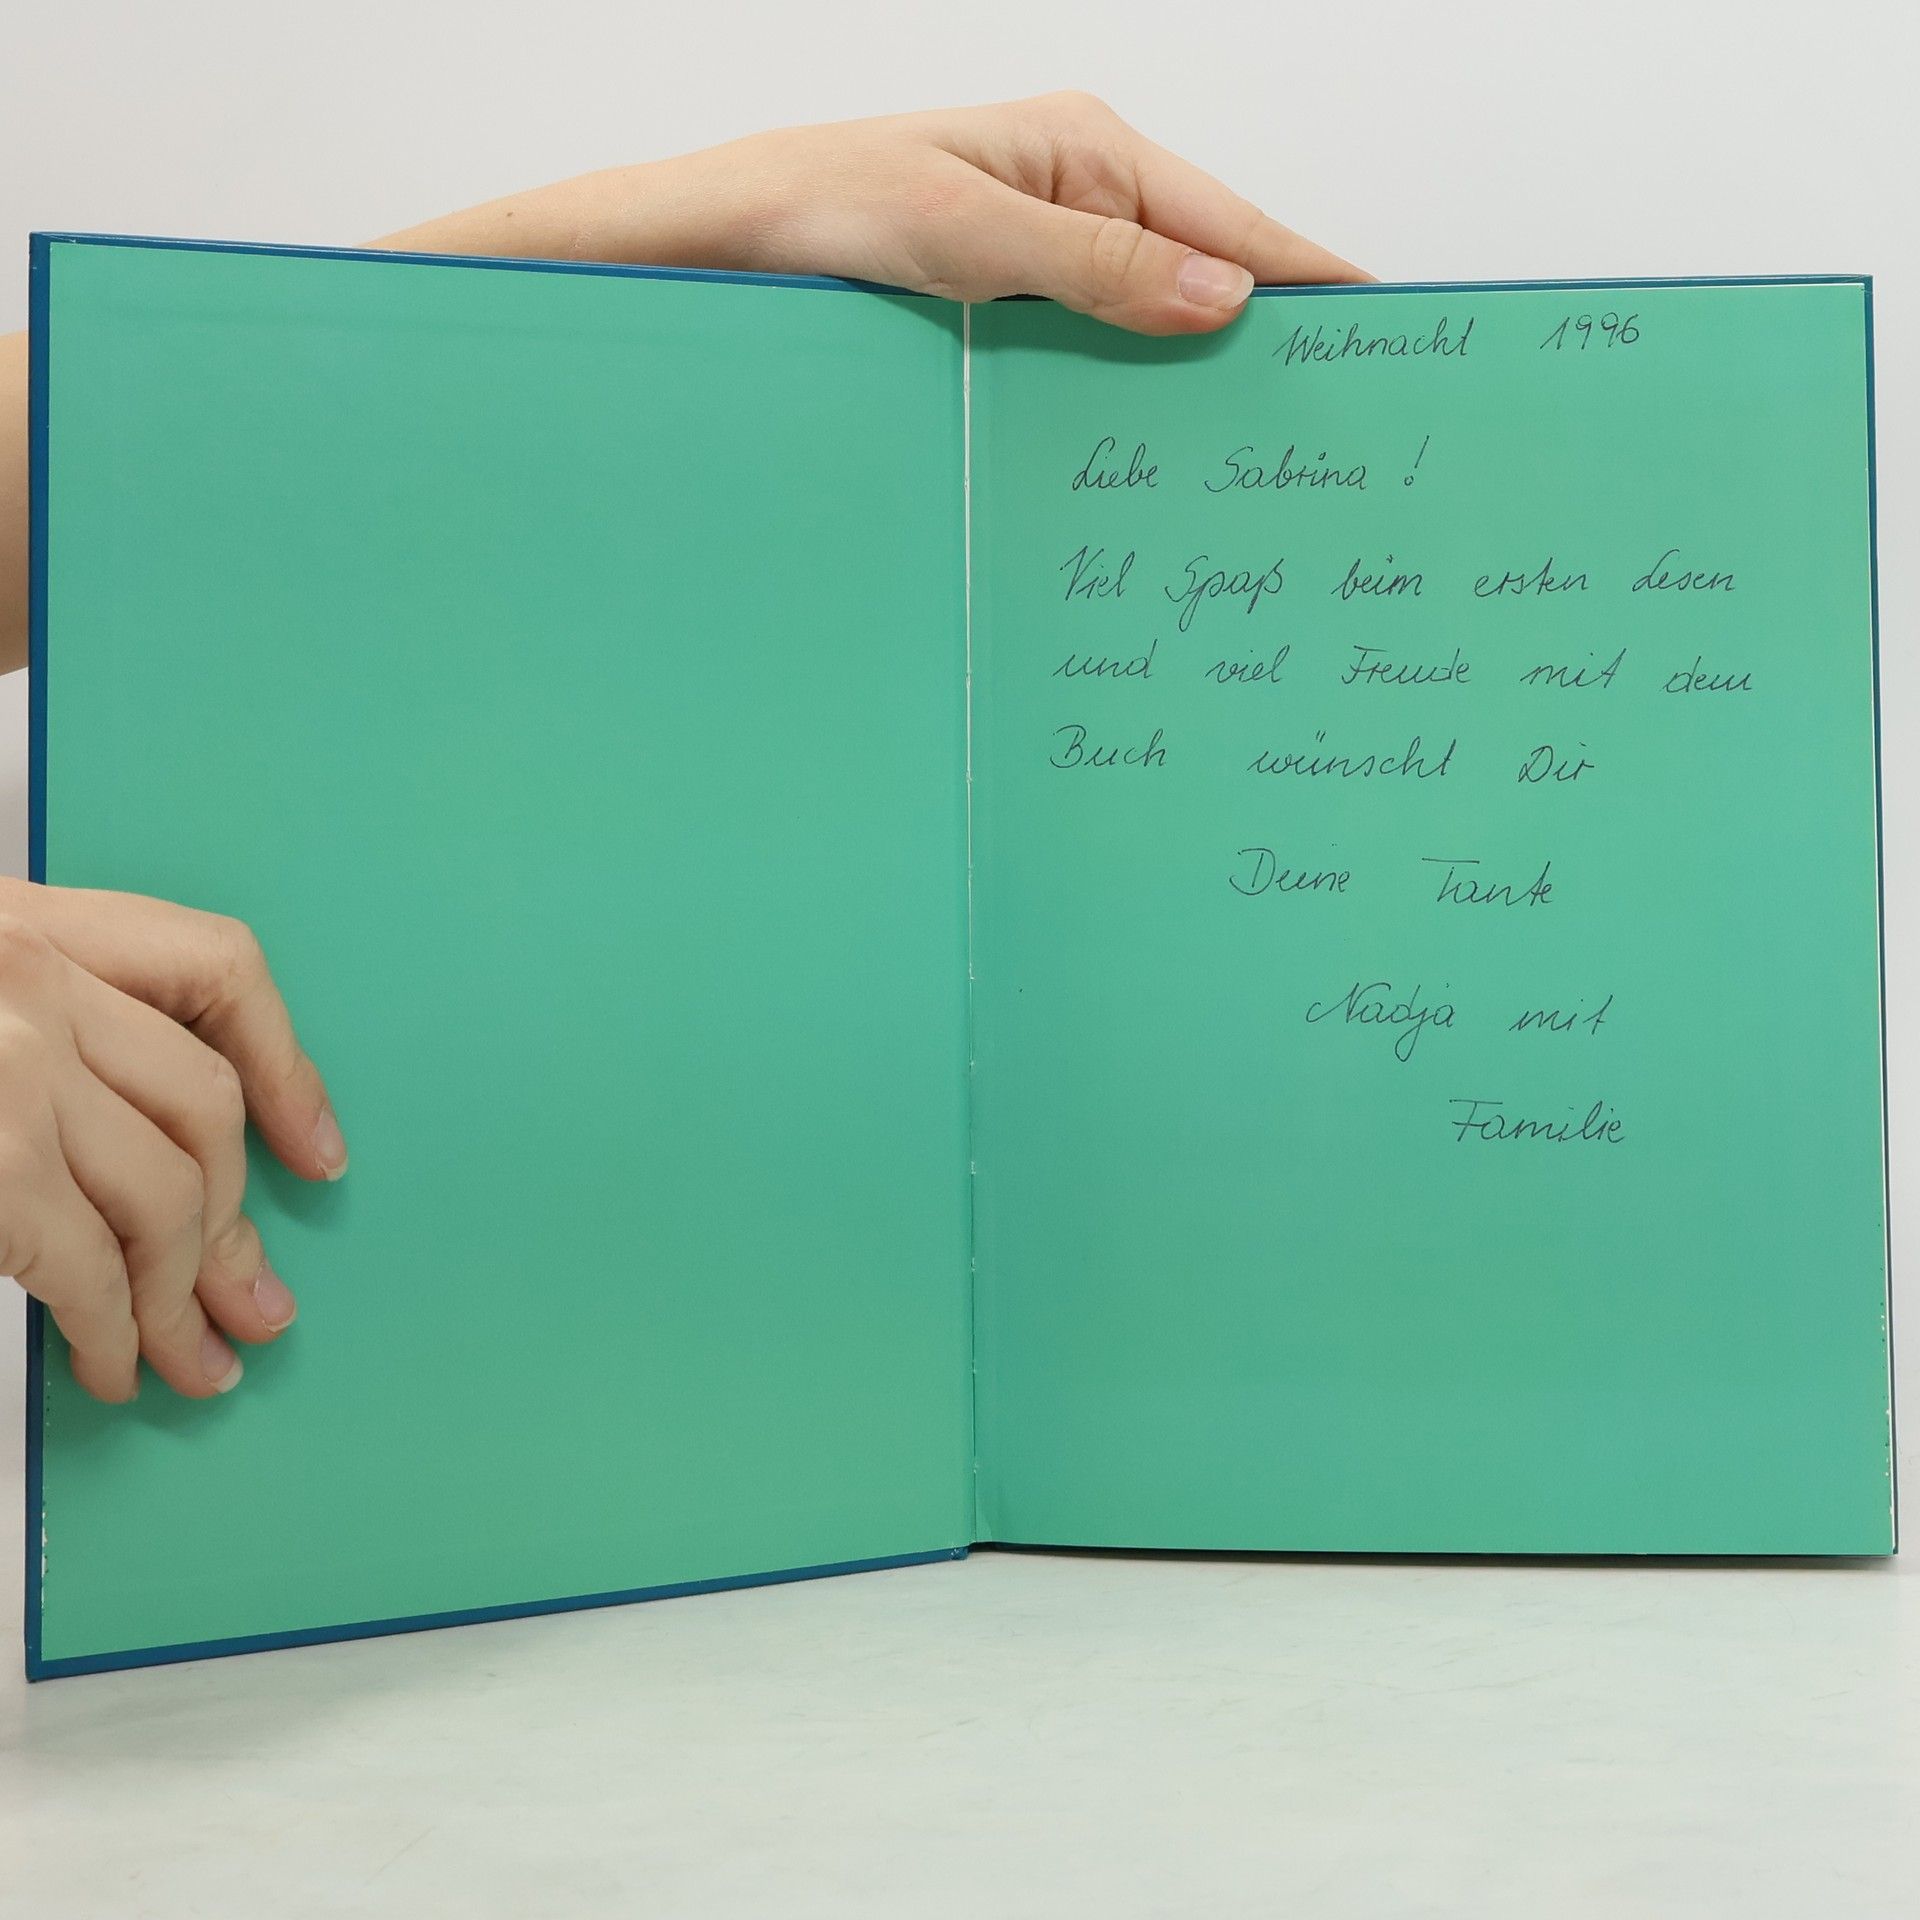 Weihnacht 1996
Liebe Sabrina !
Viel Spaß beim ersten Lesen
und viel Freude mit dem
Buch wünscht Dir
Deine Tante
Nadja mit
Familie